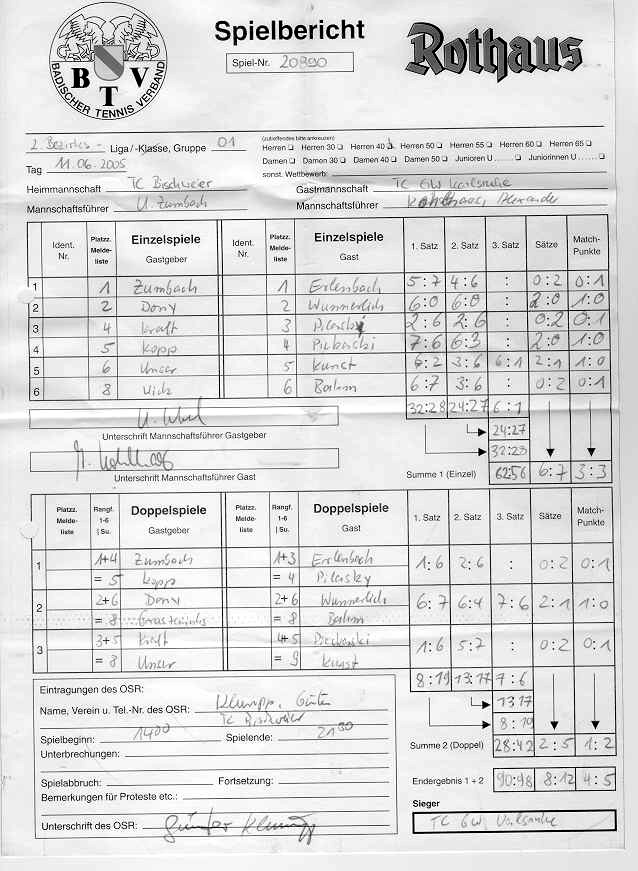 Spielbericht
Rothaus
BADISCHER TENNIS VERBAND
B T V
Spiel-Nr. 20890
2. Bezirks- Liga/-Klasse, Gruppe 01
(zutreffendes bitte ankreuzen)
Herren Herren 30 Herren 40 Herren 50 Herren 55 Herren 60 Herren 65
Tag 11.06.2005
Damen Damen 30 Damen 40 Damen 50 Junioren U ...... Juniorinnen U ......
sonst. Wettbewerb:
Heimmannschaft TC Bischweier Gastmannschaft TC GW Karlsruhe
Mannschaftsführer U. Zumbach Mannschaftsführer Kohlhaas, Alexander
Ident. Nr. Platzz. Melde-liste Einzelspiele Gastgeber Ident. Nr. Platzz. Melde-liste Einzelspiele Gast 1. Satz 2. Satz 3. Satz Sätze Match-Punkte
1 1 Zumbach 1 Erlenbach 5:7 4:6 : 0:2 0:1
2 2 Dony 2 Wunnerlich 6:0 6:0 : 2:0 1:0
3 4 Kraft 3 Pilarsky 2:6 2:6 : 0:2 0:1
4 5 Kopp 4 7:6 6:3 : 2:0 1:0
5 6 Unser 5 Kunst 6:2 3:6 6:1 2:1 1:0
6 8 6 Bahm 6:7 3:6 : 0:2 0:1
32:28 24:27 6:1
Unterschrift Mannschaftsführer Gastgeber
24:27
32:28
Unterschrift Mannschaftsführer Gast
Summe 1 (Einzel) 62:56 6:7 3:3
Platzz. Melde-liste Rangf. 1-6 | Su. Doppelspiele Gastgeber Platzz. Melde-liste Rangf. 1-6 | Su. Doppelspiele Gast 1. Satz 2. Satz 3. Satz Sätze Match-Punkte
1 1+4 Zumbach 1+3 Erlenbach 1:6 2:6 : 0:2 0:1
= 5 Kopp = 4 Pilarsky
2 2+6 Dony 2+6 Wunnerlich 6:7 6:4 7:6 2:1 1:0
= 8 = 8 Bahm
3 3+5 Kraft 4+5 1:6 5:7 : 0:2 0:1
= 8 Unser = 9 Kunst
8:19 13:17 7:6
Eintragungen des OSR:
13:17
Name, Verein u. Tel.-Nr. des OSR: Klumpp, Günter
TC Bischweier
8:19
Spielbeginn: 1400 Spielende: 2130
Unterbrechungen:
Summe 2 (Doppel) 28:42 2:5 1:2
Spielabbruch: Fortsetzung:
Endergebnis 1 + 2 90:98 8:12 4:5
Bemerkungen für Proteste etc.:
Sieger
TC GW Karlsruhe
Unterschrift des OSR: Günter Klumpp